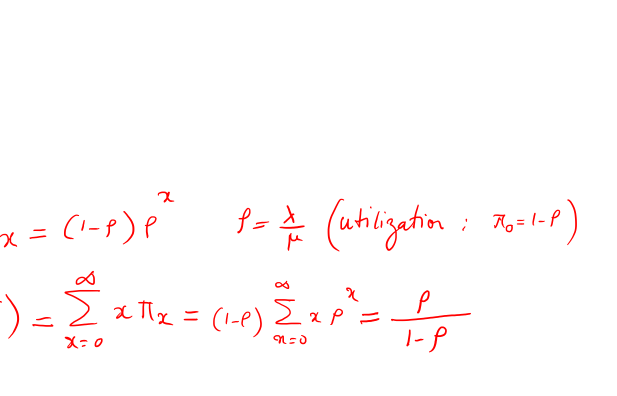 x = (1-ρ) ρ^x ρ = λ/μ (utilization ; π₀ = 1-ρ)
) = ∑_{x=0}^{∞} x π_x = (1-ρ) ∑_{x=0}^{∞} x ρ^x = ρ/(1-ρ)